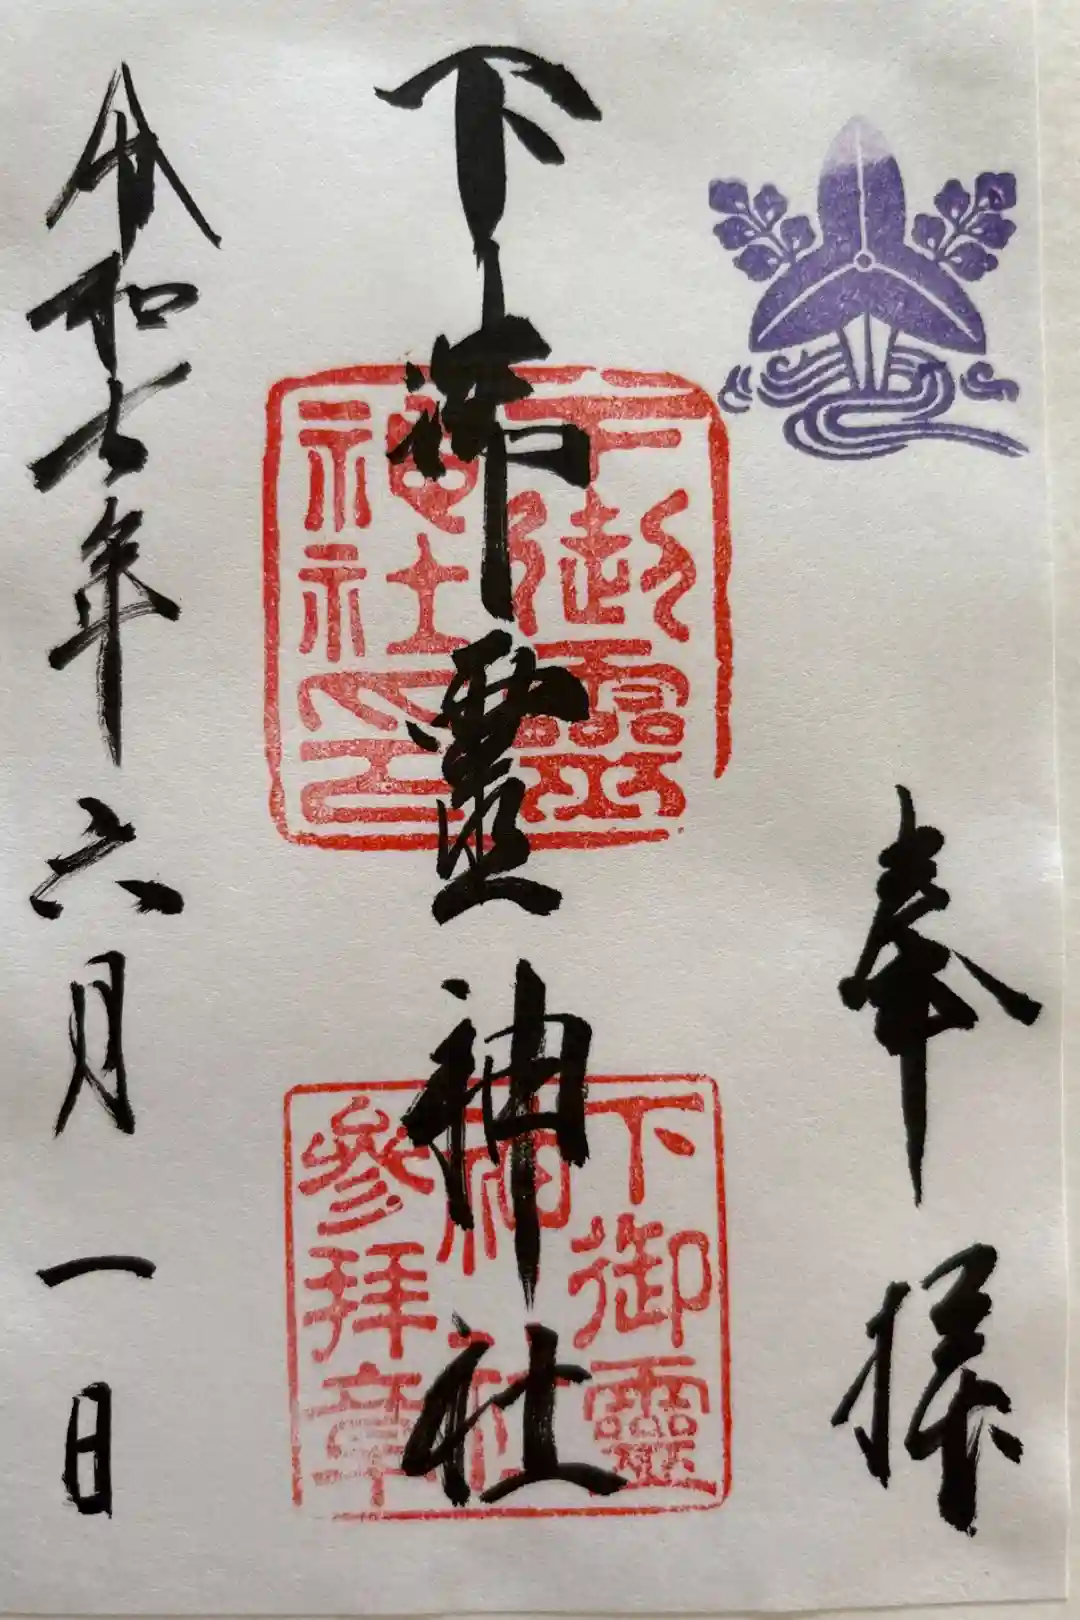 奉拝
下御靈神社
下御靈神社之印
下御靈
神社
參拜章
令和七年六月一日